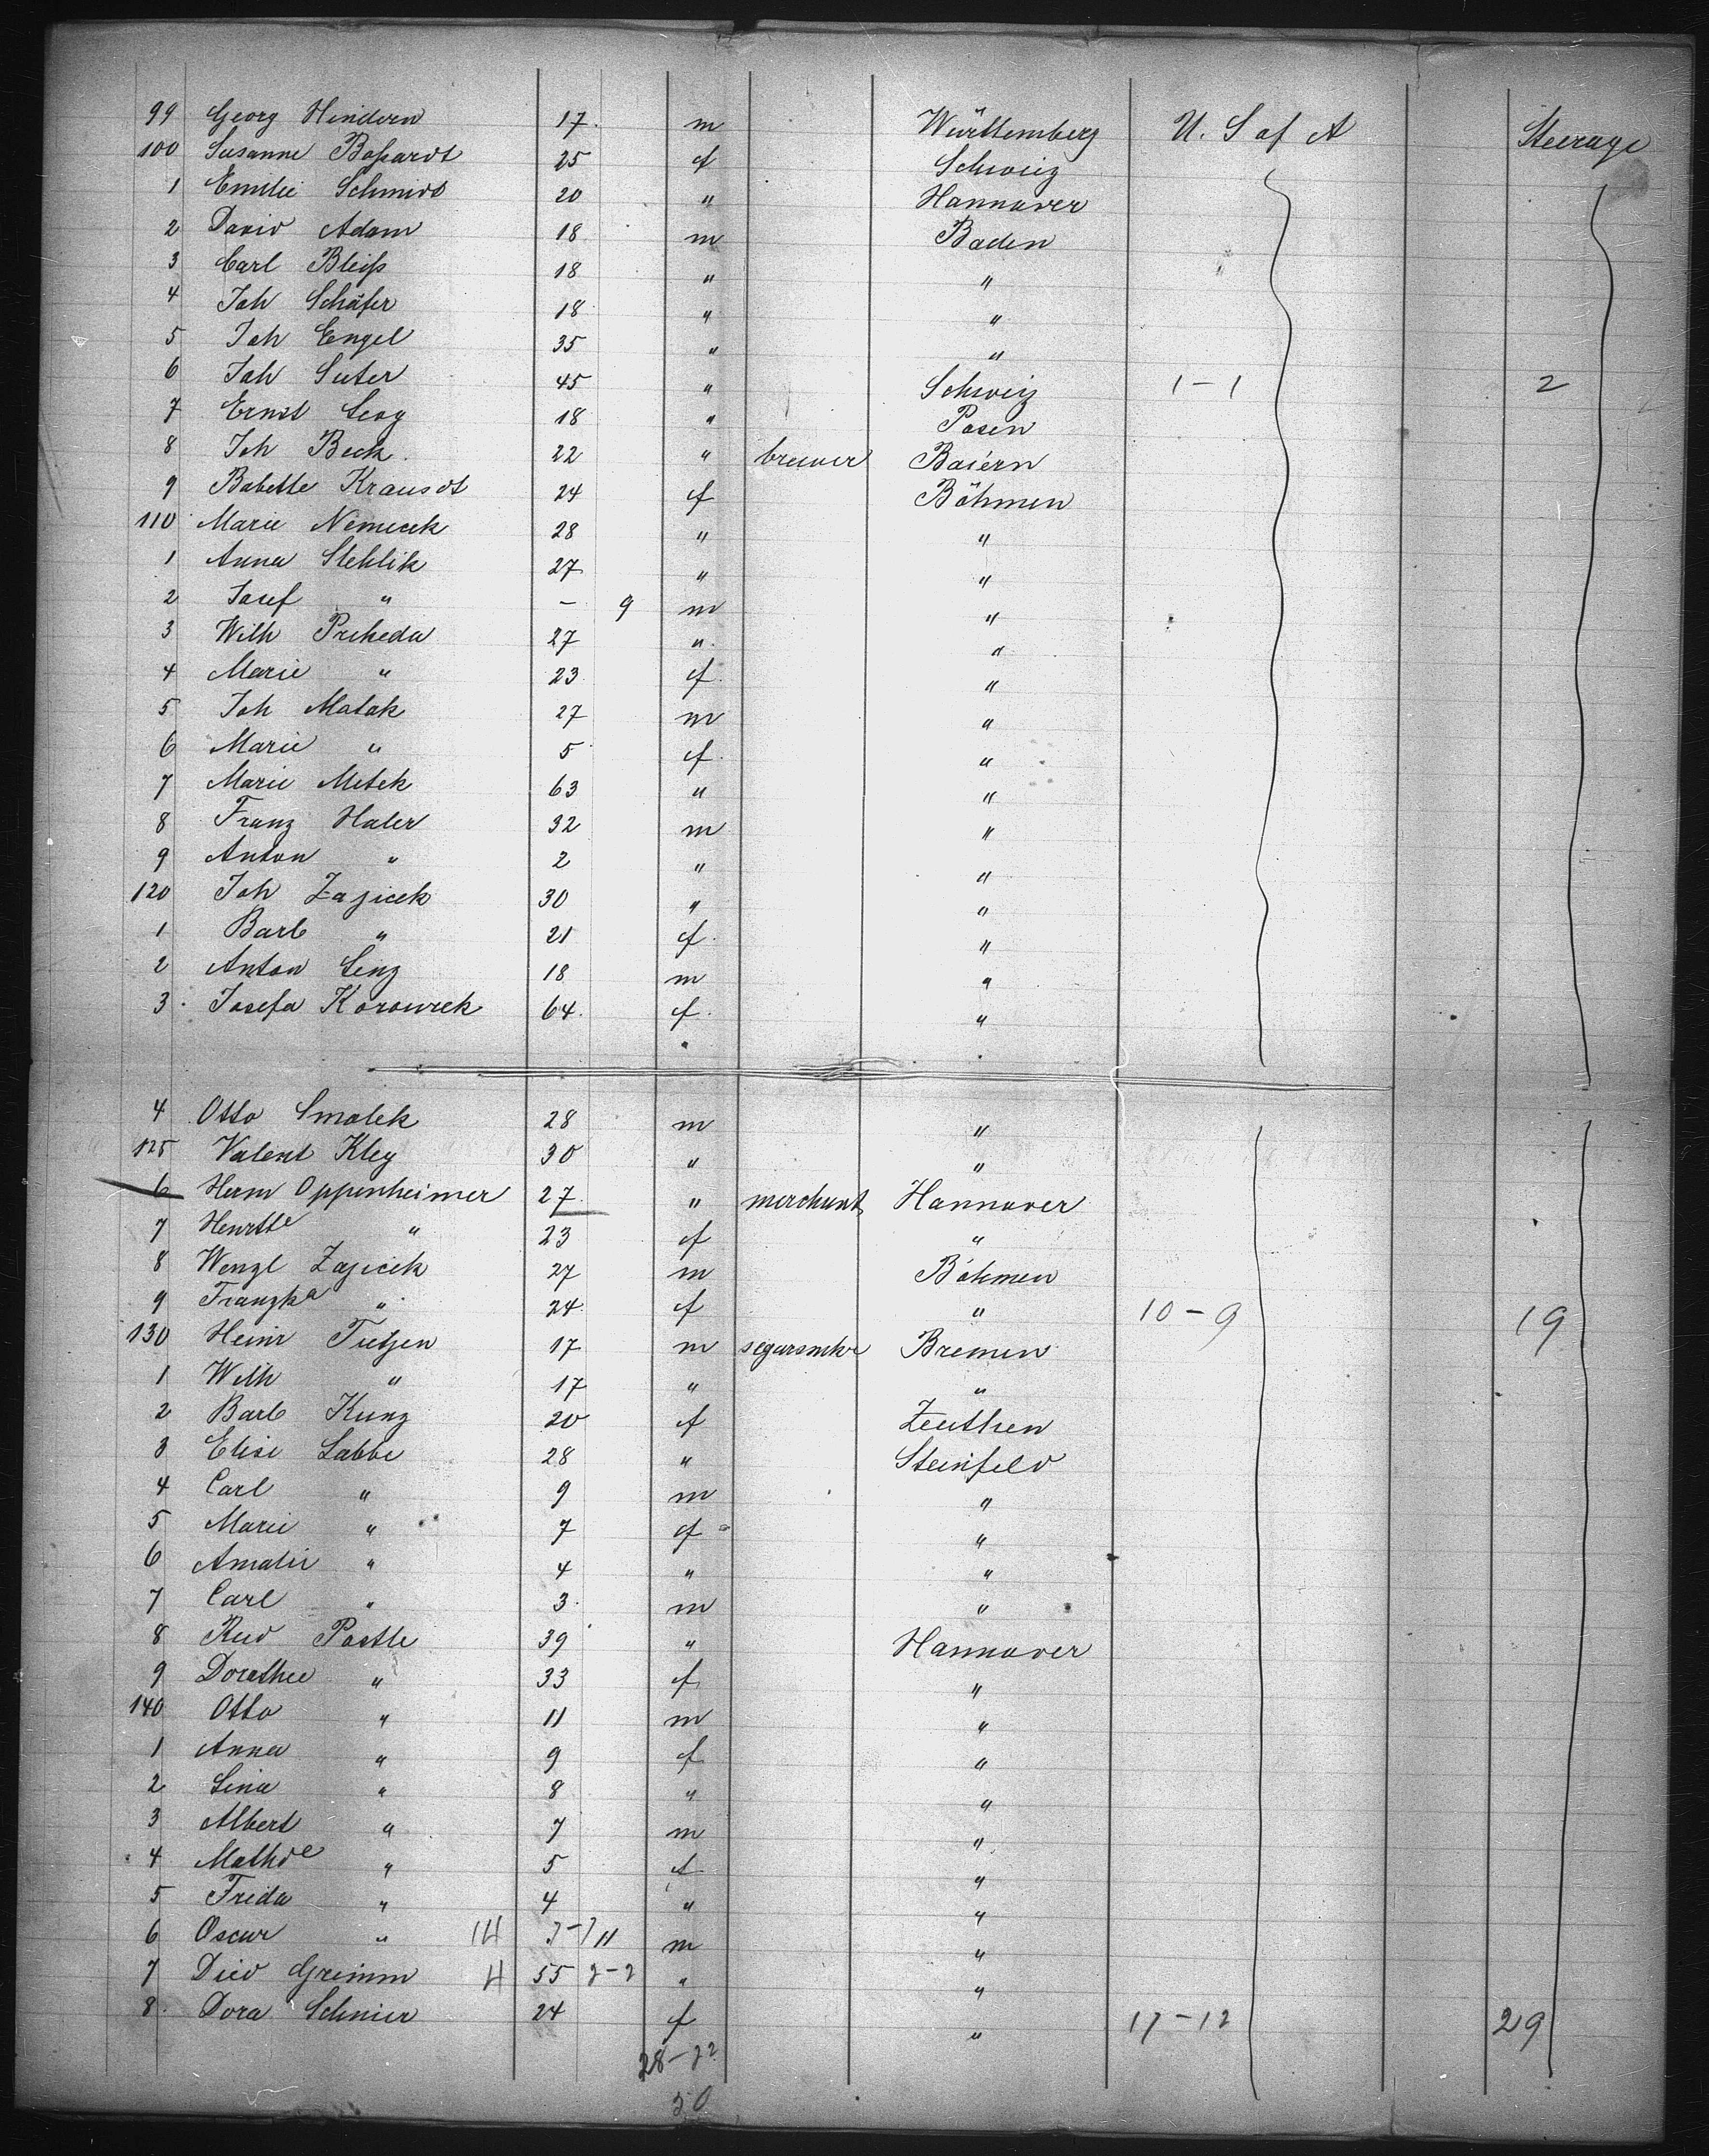 99 Georg Hindern 17 m Württemberg U. S of A Steerage
100 Susanne Boßardt 25 f Schweiz
1 Emilie Schmidt 20 " Hannover
2 David Adam 18 m Baden
3 Carl Bleiß 18 " "
4 Joh Schäfer 18 " "
5 Joh Engel 35 " "
6 Joh Suter 45 " Schweiz 1-1 2
7 Ernst Levy 18 " Posen
8 Joh Beck 22 " brewer Baiern
9 Babette Krausdt 24 f Böhmen
110 Marie Nemecek 28 " "
1 Anna Stehlik 27 " "
2 Josef " - 9 m "
3 Wilh Priheda 27 " "
4 Marie " 23 f "
5 Joh Matak 27 m "
6 Marie " 5 f "
7 Marie Metek 63 " "
8 Franz Haler 32 m "
9 Anton " 2 " "
120 Joh Zajicek 30 " "
1 Barb " 21 f "
2 Anton Lenz 18 m "
3 Josefa Korowrek 64 f "
4 Otto Smolek 28 m "
125 Valent Kley 30 " "
6 Herm Oppenheimer 27 " merchant Hannover
7 Henrtte " 23 f "
8 Wenzl Zajicek 27 m Böhmen
9 Franzka " 24 f " 10-9 19
130 Heinr Tietjen 17 m segarsmkr Bremen
1 Wilh " 17 " "
2 Barb Kunz 20 f Zeuthen
3 Elise Labbe 28 " Steinfeld
4 Carl " 9 m "
5 Marie " 7 f "
6 Amalie " 4 " "
7 Carl " 3 m "
8 Rud Postle 39 " Hannover
9 Dorothee " 33 f "
140 Otto " 11 m "
1 Anna " 9 f "
2 Lina " 8 " "
3 Albert " 7 m "
4 Mathde " 5 f "
5 Frida " 4 " "
6 Oscar " 14 11 m "
7 Died Grimm 4 55 2-2 " "
8 Dora Schnier 24 f " 17-12 29
28-22
50